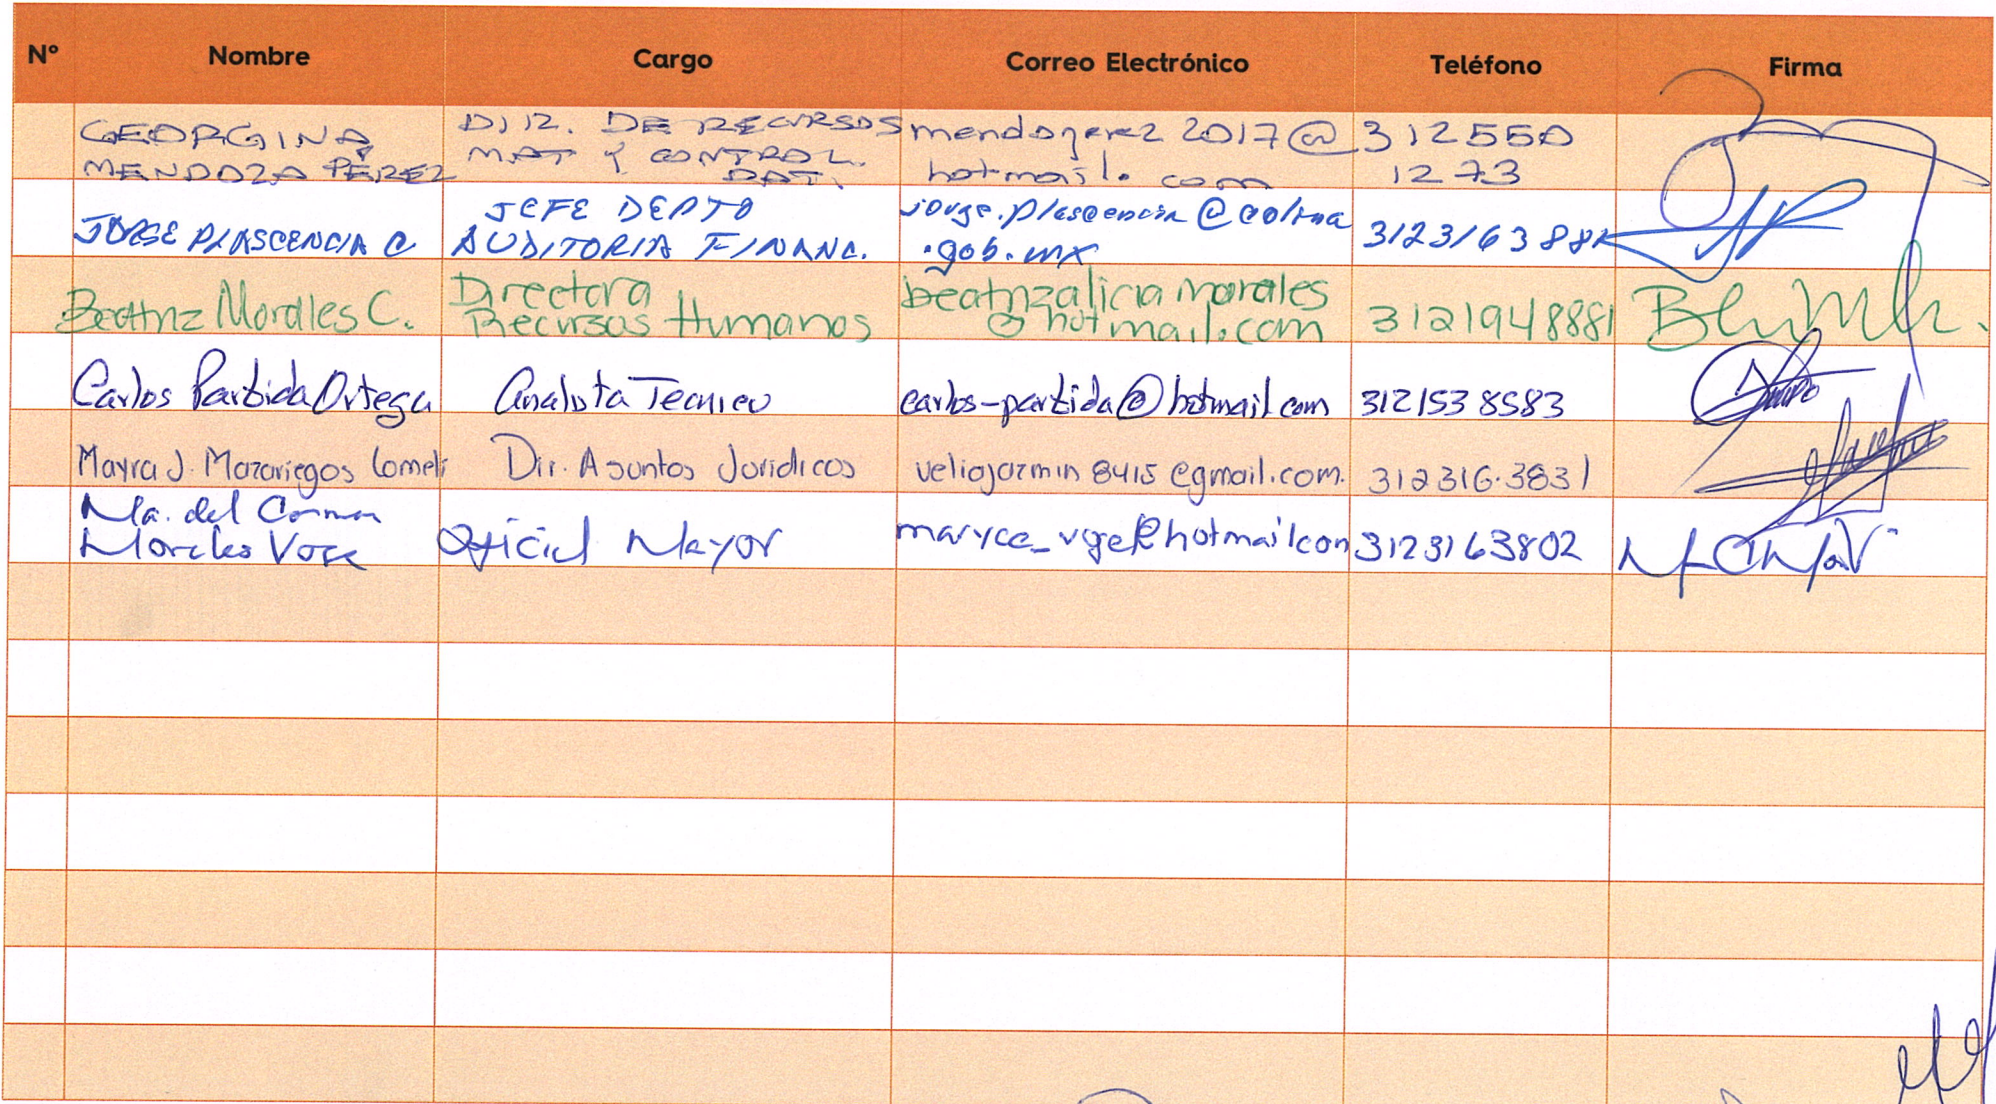 Nº Nombre Cargo Correo Electrónico Teléfono Firma
GEORGINA
MENDOZA PÉREZ
DIR. DE RECURSOS
MAT Y CONTROL
PAT.
mendozperez2017@
hotmail.com
312550
1273
JORGE PLASCENCIA C
JEFE DEPTO
AUDITORIA FINANC.
jorge.plascencia@colima
.gob.mx
312316388
Beatriz Morales C.
Directora
Recursos Humanos
beatrizaliciamorales
@hotmail.com
3121948881
Carlos Partida Ortega
Analista Tecnico
carlos-partida@hotmail.com
3121538583
Mayra J. Mazariegos Lomeli
Dir. Asuntos Juridicos
veliajazmin8415@gmail.com.
312316.3831
Ma. del Carmen
Morales
Oficial Mayor
3123163802